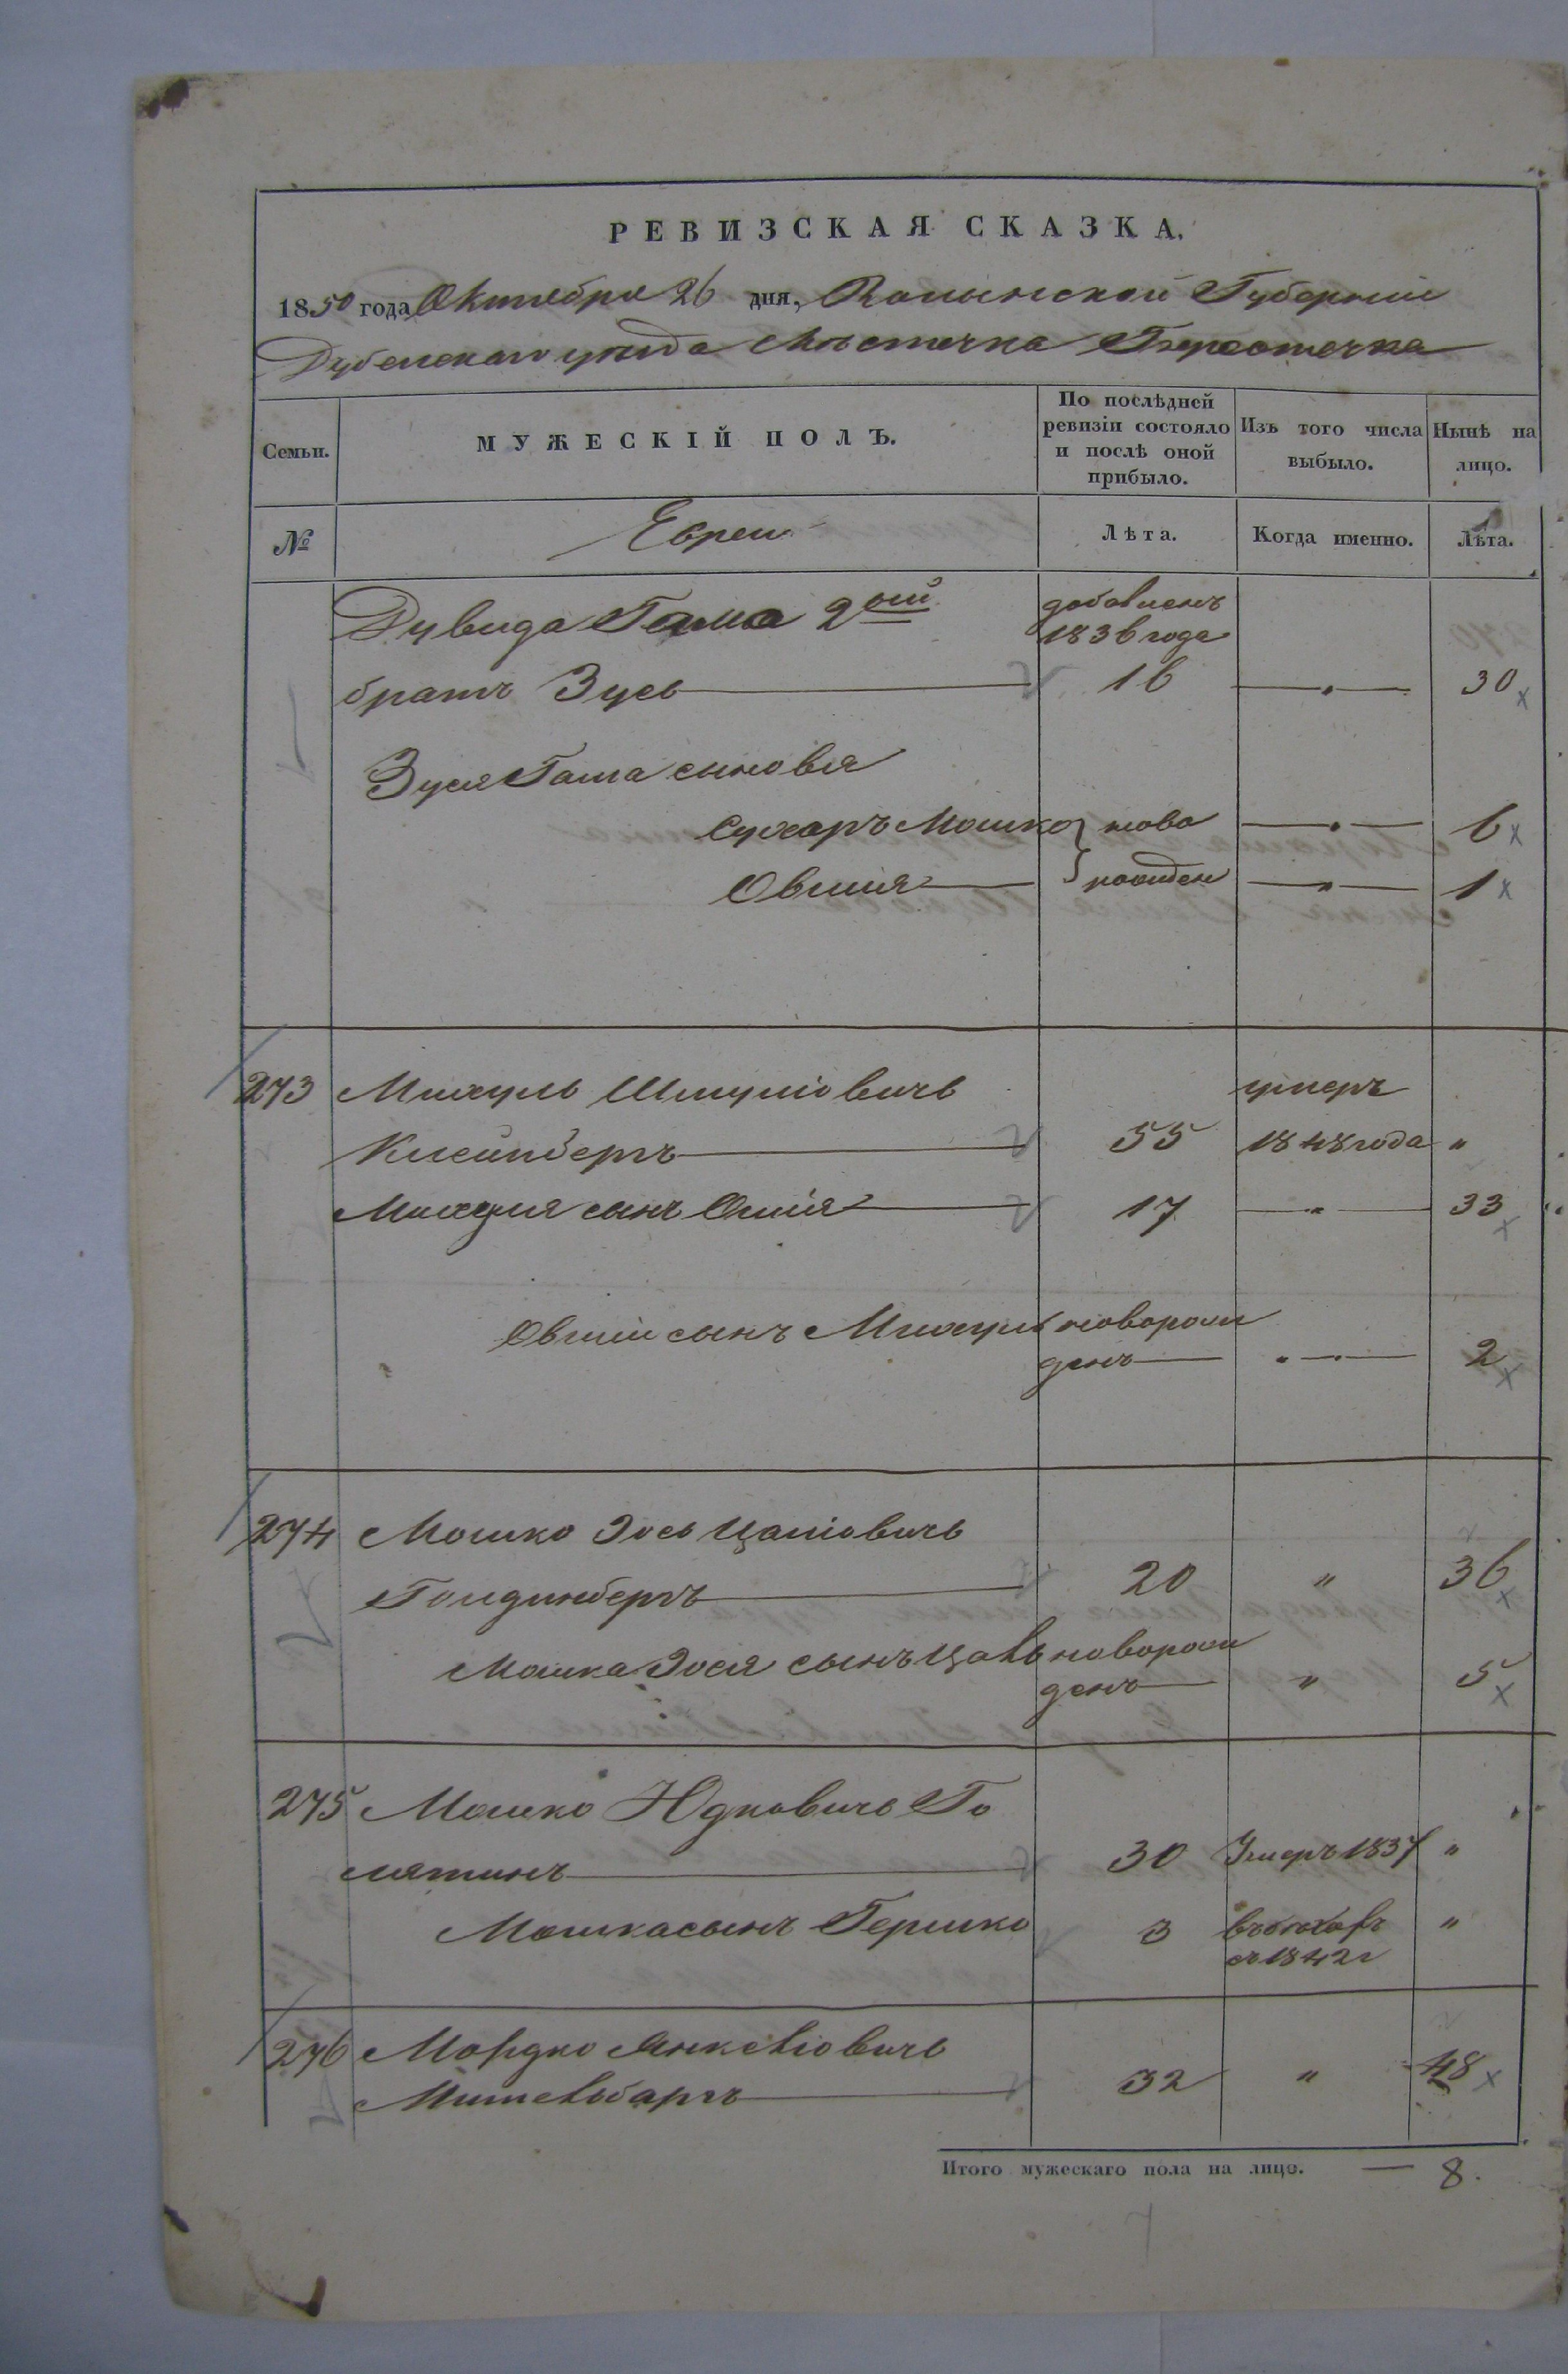 РЕВИЗСКАЯ СКАЗКА.
1850 года Октября 26 дня, Волынской Губернии
Дубенскаго уезда Местечка Берестечка
Семьи. МУЖЕСКІЙ ПОЛЪ. По послѣдней ревизіи состояло и послѣ оной прибыло. Изъ того числа выбыло. Нынѣ на лицо.
№ Евреи Лѣта. Когда именно. Лѣта.
Дувида Гама 2ой добавленъ
1836 года
братъ Зусь 16 — " — 30
Зуся Гама сыновья
Сухаръ Мошко } ново — " — 6
Овшия } рожден — " — 1
273 Михуль Шмуліовичъ умеръ
Клейнбергъ 55 1848 года "
Михуля сынъ Овшія 17 — " — 33
Овшіи сынъ Михуль новорож
денъ — " — 2
274 Мошко Іось Цаліовичъ
Голдинбергъ 20 " 36
Мошка Іося сынъ Цаль новорож
денъ " 5
275 Мошко Юдковичъ Го
лятинъ 30 Умеръ 1837 "
Мошка сынъ Гершко 3 въ бегахъ "
съ 1842 г
276 Мордко Янкеліовичъ
Мительбаргъ 32 " 48
Итого мужескаго пола на лицо. — 8.